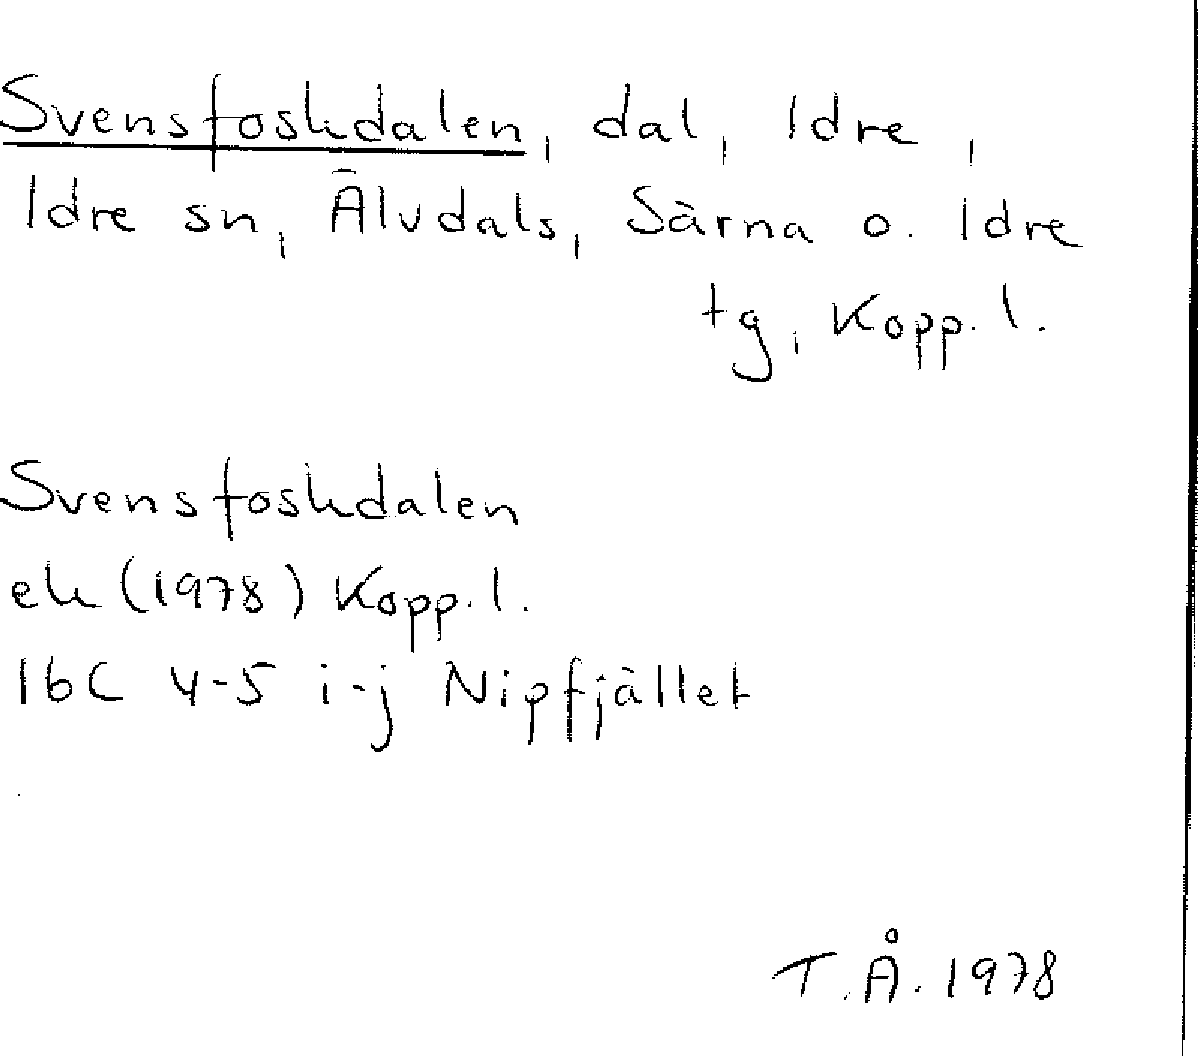 Svensfoskdalen, dal, Idre,
Idre sn, Älvdals, Särna o. Idre
tg, Kopp. l.
Svensfoskdalen
ek (1978) Kopp. l.
16C 4-5 i-j Nipfjället
T.Å. 1978